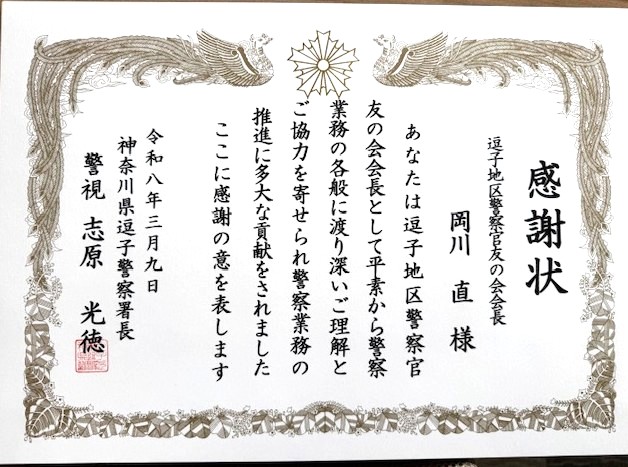 感謝状
逗子地区警察官友の会会長
岡川 直 様
あなたは逗子地区警察官
友の会会長として平素から警察
業務の各般に渡り深いご理解と
ご協力を寄せられ警察業務の
推進に多大な貢献をされました
ここに感謝の意を表します
令和八年三月九日
神奈川県逗子警察署長
警視 志原 光徳